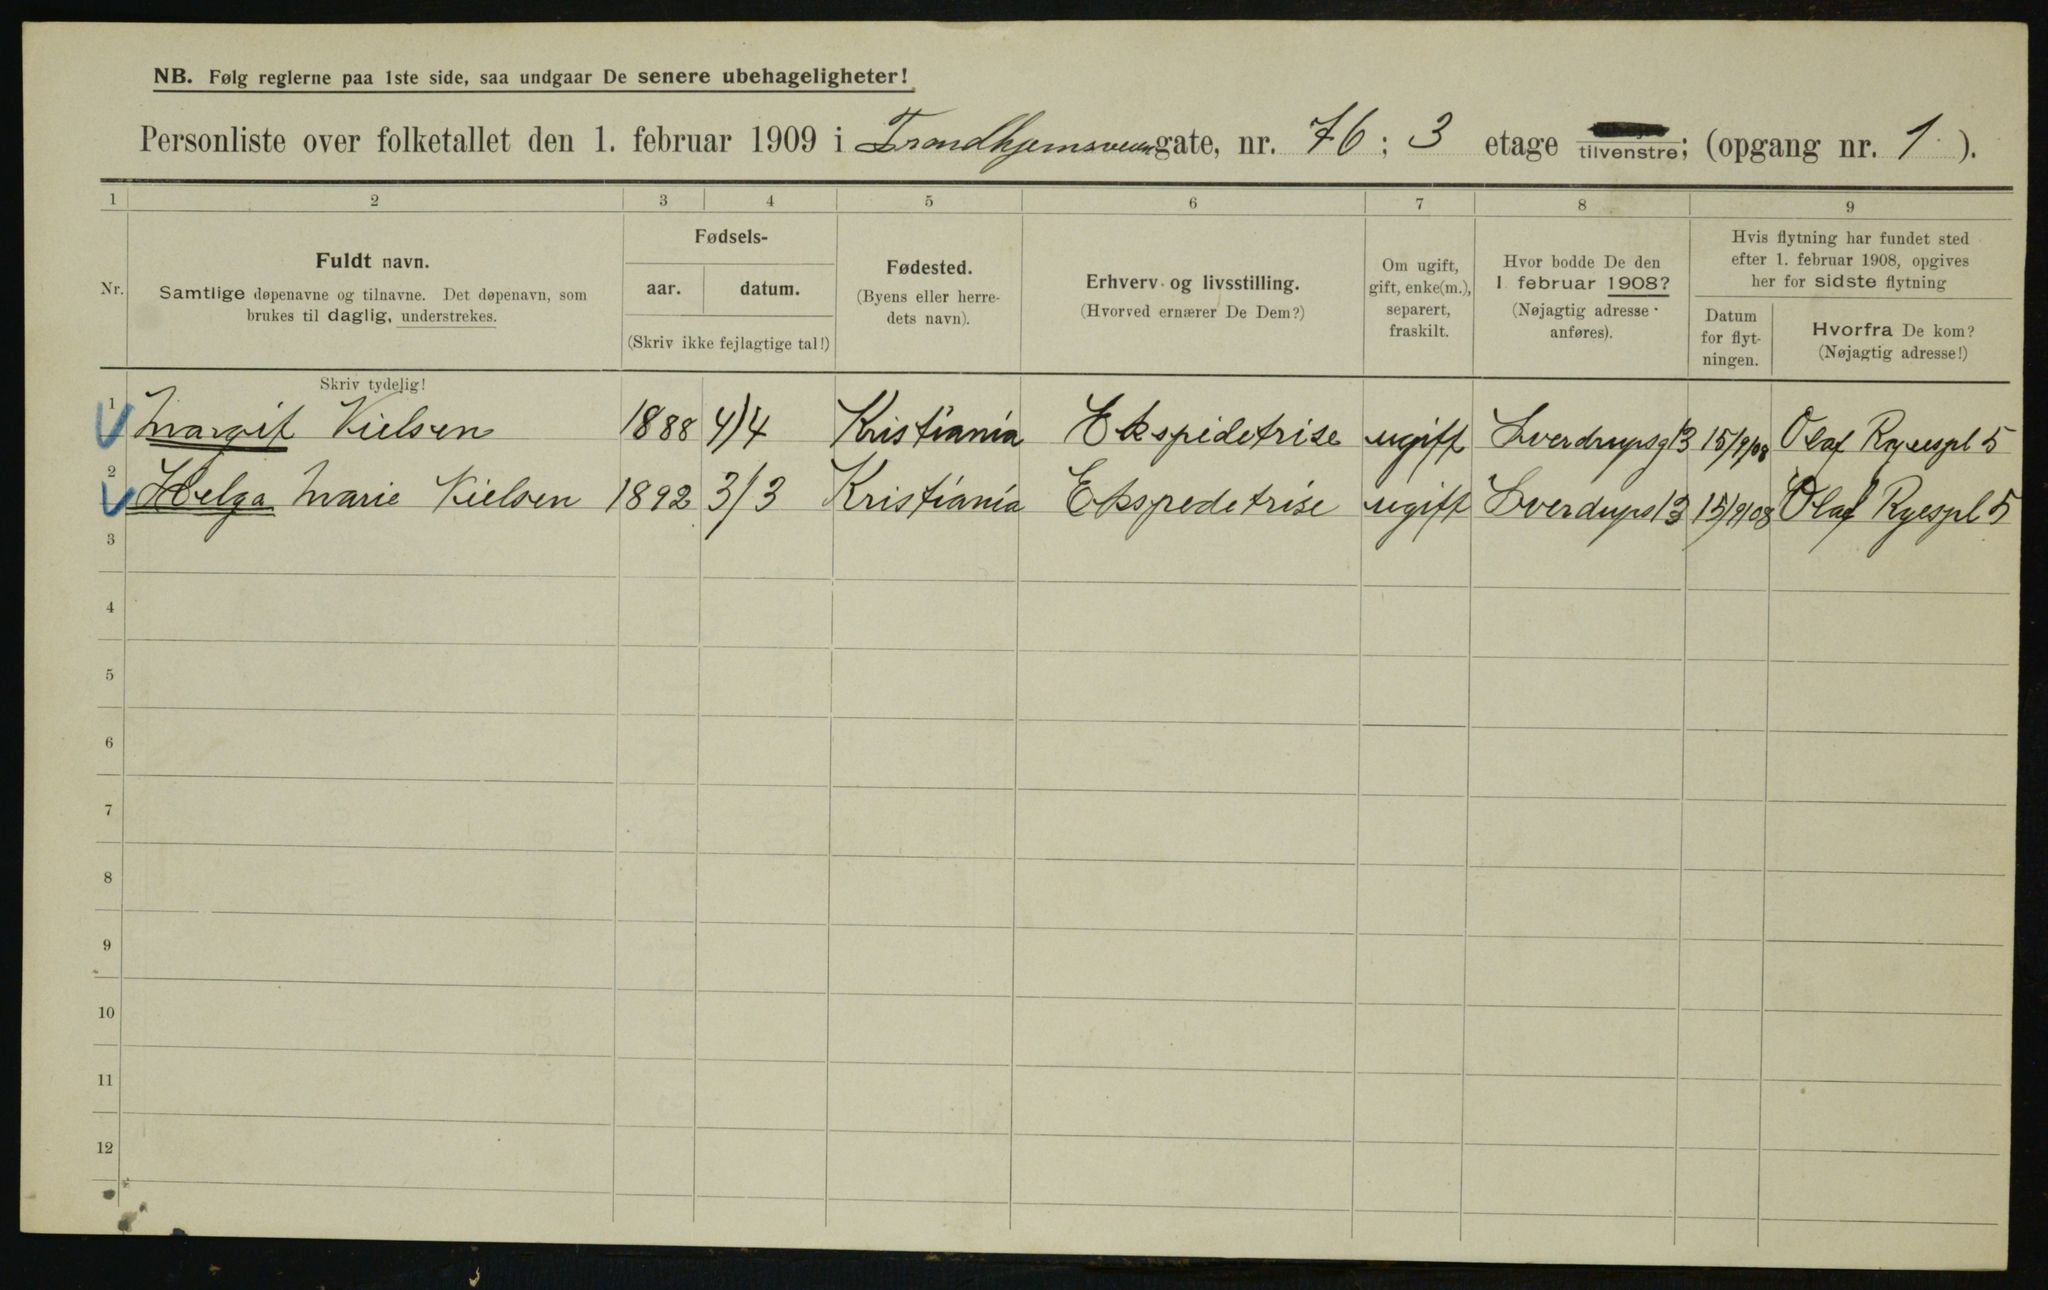 NB. Følg reglerne paa 1ste side, saa undgaar De senere ubehageligheter!
Personliste over folketallet den 1. februar 1909 i Trondhjemsveien gate, nr. 76; 3 etage tilvenstre; (opgang nr. 1).
1 2 3 4 5 6 7 8 9
Nr.
Fuldt navn.
Samtlige døpenavne og tilnavne. Det døpenavn, som
brukes til daglig, understrekes.
Skriv tydelig!
Fødsels-
aar. datum.
(Skriv ikke fejlagtige tal!)
Fødested.
(Byens eller herre-
dets navn).
Erhverv og livsstilling.
(Hvorved ernærer De Dem?)
Om ugift,
gift, enke(m.),
separert,
fraskilt.
Hvor bodde De den
1 februar 1908?
(Nøjagtig adresse
anføres).
Hvis flytning har fundet sted
efter 1. februar 1908, opgives
her for sidste flytning
Datum
for flyt-
ningen.
Hvorfra De kom?
(Nøjagtig adresse!)
1 Margit Nielsen 1888 4/4 Kristiania Ekspidetrise ugift Sverdrupsg 13 15/9/08 Olaf Ryespl 5
2 Helga Marie Nielsen 1892 3/3 Kristiania Ekspedetrise ugift Sverdups 13 15/9/08 Olaf Ryespl 5
3
4
5
6
7
8
9
10
11
12